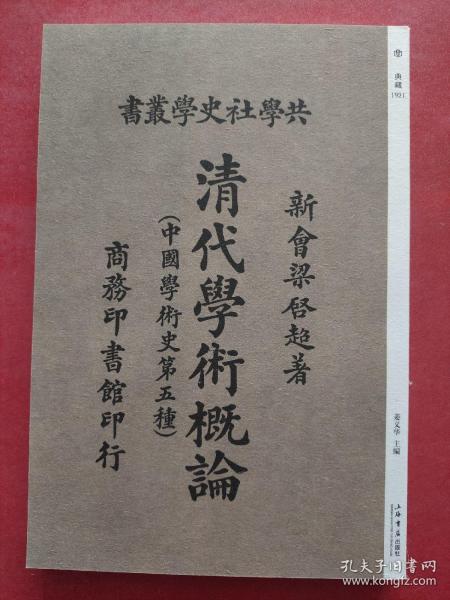 共學社史學叢書
新會梁啓超著
清代學術概論
(中國學術史第五種)
商務印書館印行
典藏
1921
姜义华 主编
上海书店出版社
孔夫子旧书网
www.kongfz.com